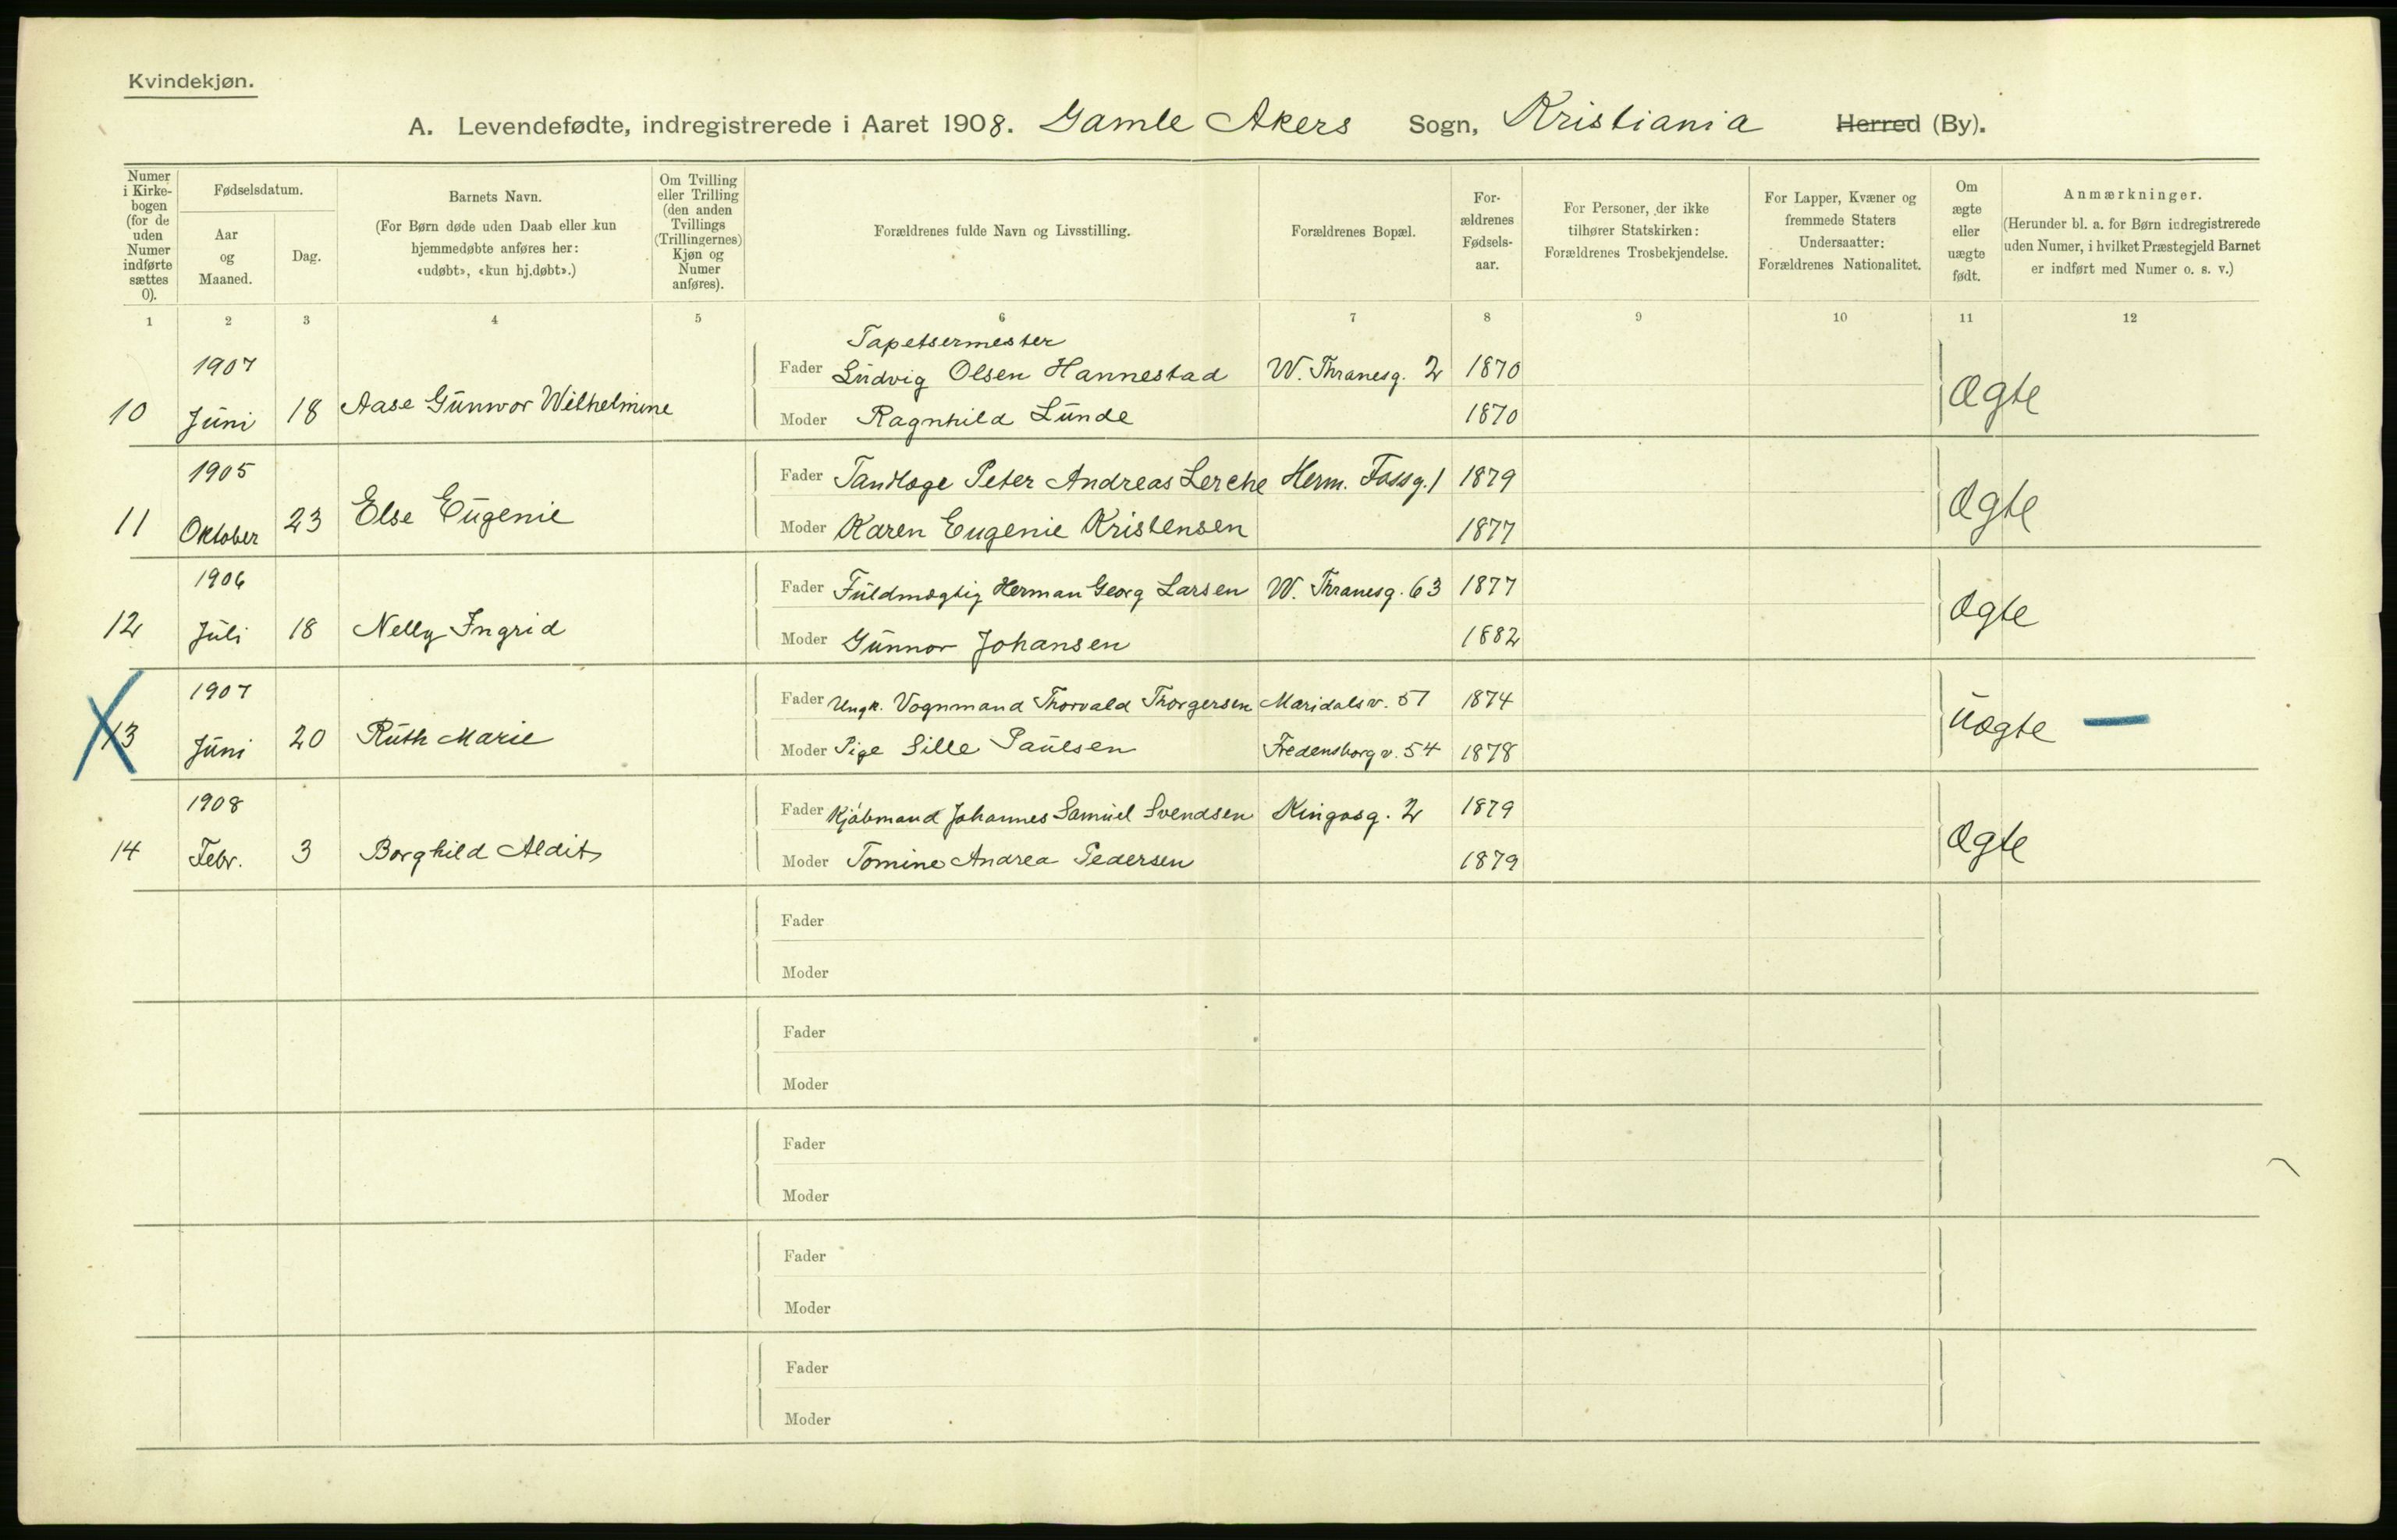 Kvindekjøn.
A. Levendefødte, indregistrerede i Aaret 1908. Gamle Akers Sogn, Kristiania Herred (By).
Numer i Kirkebogen (for de uden Numer indførte sættes 0).
Fødselsdatum.
Aar og Maaned.
Dag.
Barnets Navn.
(For Børn døde uden Daab eller kun hjemmedøbte anføres her: «udøbt», «kun hj.døbt».)
Om Tvilling eller Trilling (den anden Tvillings (Trillingernes) Kjøn og Numer anføres).
Forældrenes fulde Navn og Livsstilling.
Forældrenes Bopæl.
Forældrenes Fødselsaar.
For Personer, der ikke tilhører Statskirken: Forældrenes Trosbekjendelse.
For Lapper, Kvæner og fremmede Staters Undersaatter: Forældrenes Nationalitet.
Om ægte eller uægte født.
Anmærkninger.
(Herunder bl. a. for Børn indregistrerede uden Numer, i hvilket Præstegjeld Barnet er indført med Numer o. s. v.)
1 2 3 4 5 6 7 8 9 10 11 12
Tapetsermester
1907 Fader Ludvig Olsen Hannestad W. Thranesg. 2 1870
10 Juni 18 Aase Gunwor Wilhelmine Moder Ragnhild Lunde 1870 Ægte
1905 Fader Tandlæge Peter Andreas Lerche Herm. Fossg. 1 1879
11 Oktober 23 Else Eugenie Moder Karen Eugenie Kristensen 1877 Ægte
1906 Fader Fuldmægtig Herman Georg Larsen W. Thranesg. 63 1877
12 Juli 18 Nelly Ingrid Moder Gunnor Johansen 1882 Ægte
1907 Fader Ungk. Vognmand Thorvald Thorgersen Maridalsv. 51 1874
13 Juni 20 Ruth Marie Moder Pige Sille Paulsen Fredensborgv. 54 1878 Uægte
1908 Fader Kjøbmand Johannes Samuel Svendsen Kingosg. 2 1879
14 Febr. 3 Borghild Aldit Moder Tomine Andrea Pedersen 1879 Ægte
Fader
Moder
Fader
Moder
Fader
Moder
Fader
Moder
Fader
Moder